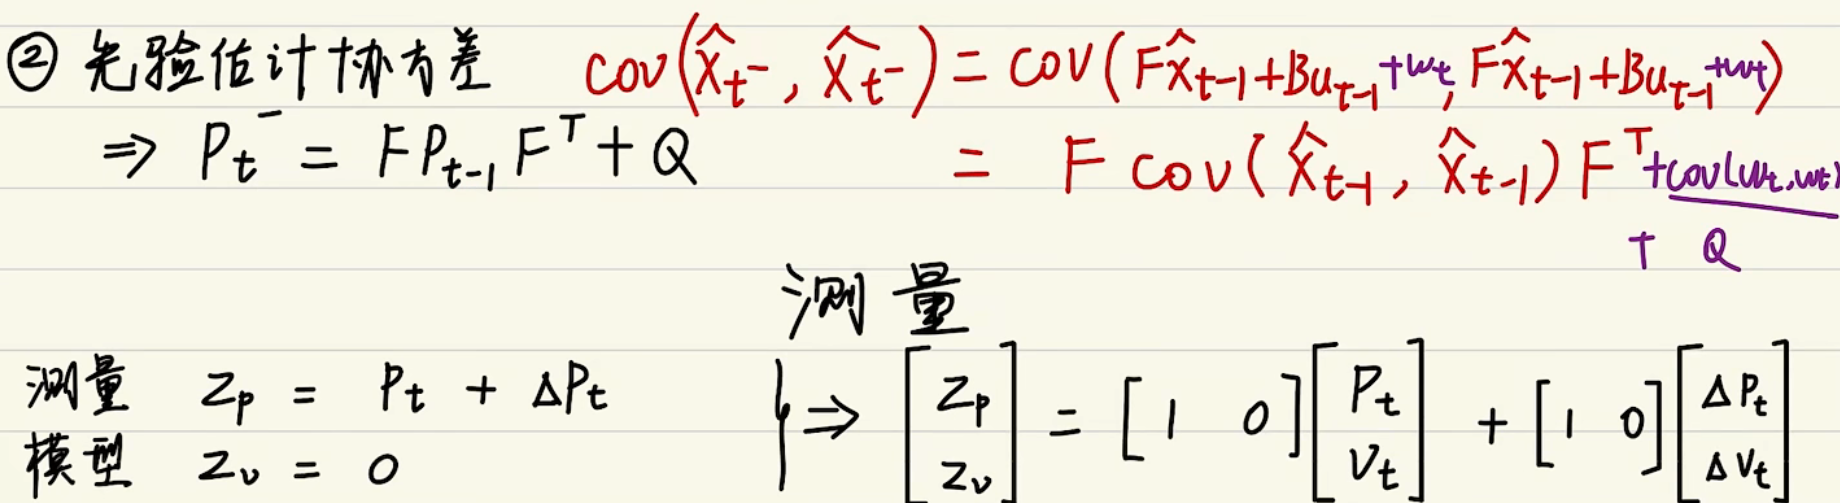 ② 先验估计协方差 cov(x̂ₜ⁻, x̂ₜ⁻) = cov(Fx̂ₜ₋₁+Buₜ₋₁+wₜ, Fx̂ₜ₋₁+Buₜ₋₁+wₜ)
⇒ Pₜ⁻ = FPₜ₋₁Fᵀ + Q = F cov(x̂ₜ₋₁, x̂ₜ₋₁)Fᵀ+cov(wₜ,wₜ)
+ Q
测量
测量 Zₚ = Pₜ + ΔPₜ ⇒ [Zₚ Zᵥ] = [1 0][Pₜ Vₜ] + [1 0][ΔPₜ ΔVₜ]
模型 Zᵥ = 0